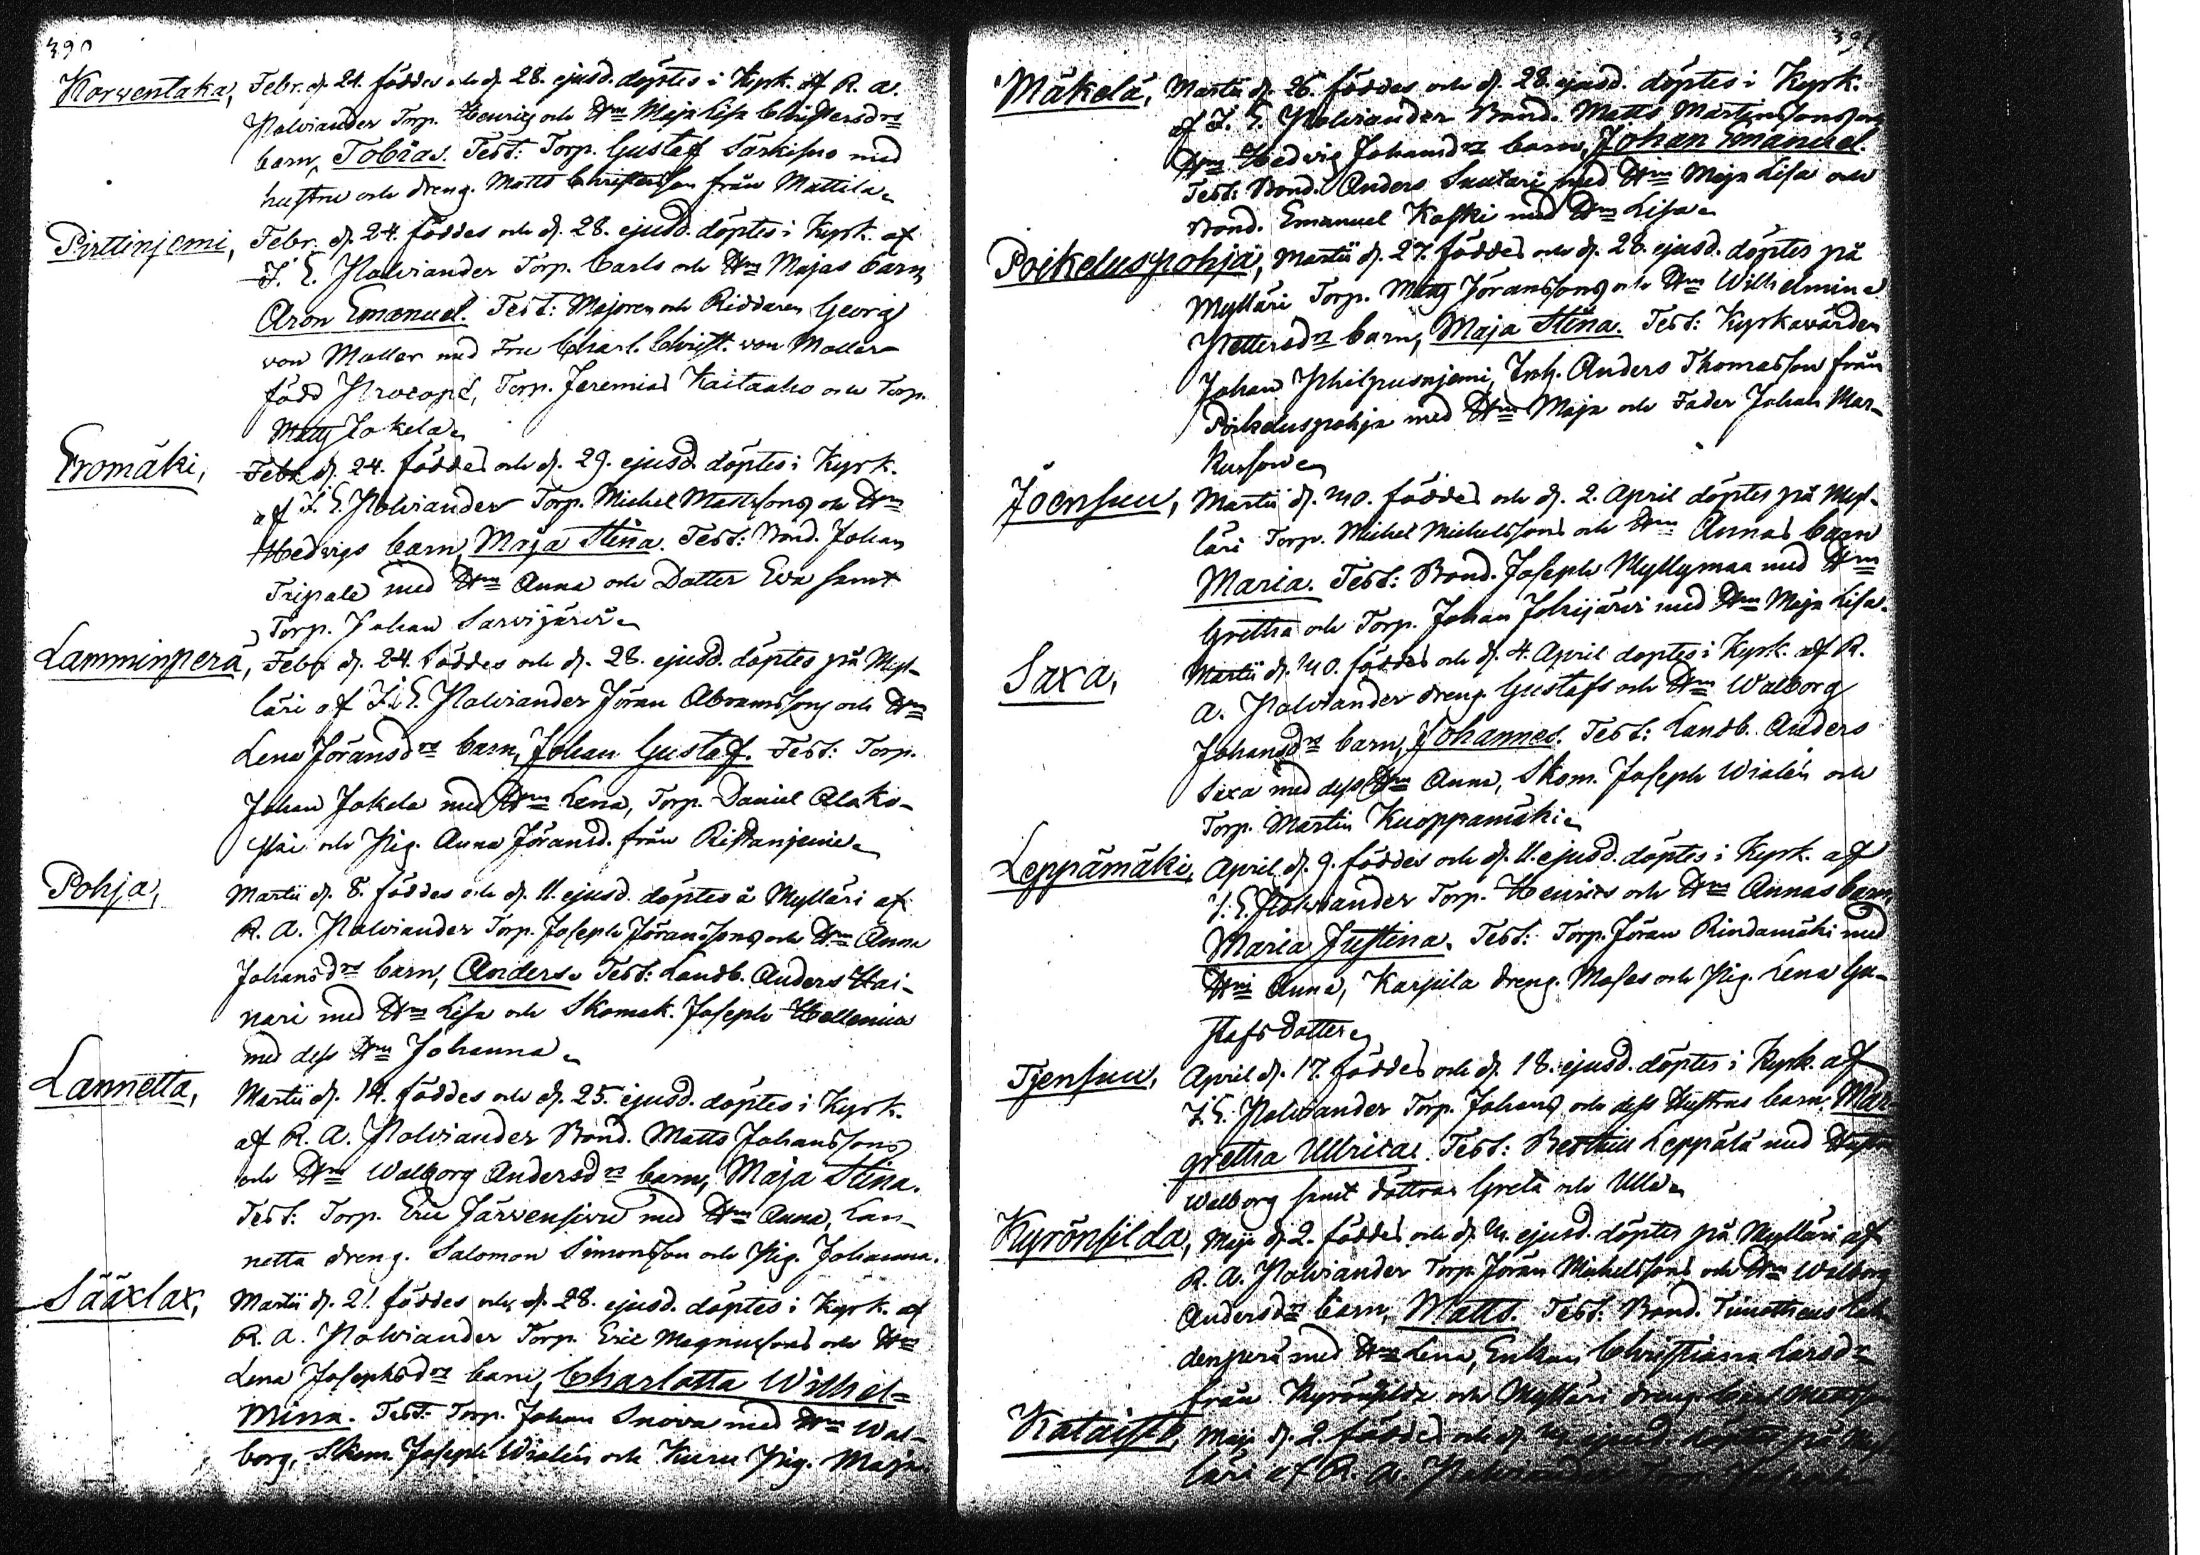 390
Korwentaka, Febr. d. 21. föddes och d. 28. ejusd. döptes i Kyrk. af R. A.
Polviander Torp. Henrics och Hm Maja Lisa Christersdrs
barn, Tobias. Test: Torp. Gustaf Särkisuo med
hustru och dreng. Matts Christersson från Mattila.
Pirttinjemi, Febr. d. 24. föddes och d. 28. ejusd. döptes i Kyrk. af
I. E. Polviander Torp. Carls och Hm Majas barn
Aron Emanuel. Test: Majoren och Riddaren Georg
von Moller med Fru Charl. Christ. von Moller
född Procopé, Torp. Jeremias Kaitaaho och Torp.
Matts Jokela.
Eromäki, Febr. d. 24. föddes och d. 29. ejusd. döptes i Kyrk.
af I. E. Polviander Torp. Michel Mattssons och Hm
Hedvigs barn, Maja Stina. Test: Bond. Johan
Tripale med Hm Anna och Dotter Eva samt
Torp. Johan Sarvijärvi.
Lamminperä, Febr. d. 24. föddes och d. 28. ejusd. döptes på Myl-
läri af I. E. Polviander Jöran Abramssons och Hm
Lena Jöransdrs barn, Johan Gustaf. Test: Torp.
Johan Jokela med Hm Lena, Torp. Daniel Alako-
ski och Pig. Anna Jöransd. från Ristanjemi.
Pohja, Martii d. 8. föddes och d. 11. ejusd. döptes å Mylläri af
R. A. Polviander Torp. Joseph Jöranssons och Hm Anna
Johansdrs barn, Anders. Test: Landb. Anders Hai-
nari med Hm Lisa och Skomak. Joseph Hellenius
med dess Hm Johanna.
Lannetta, Martii d. 14. föddes och d. 25. ejusd. döptes i Kyrk.
af R. A. Polviander Bond. Matts Johanssons
och Hm Walborg Andersdrs barn, Maja Stina.
Test: Torp. Eric Järvensivu med Hm Anna, Lan-
netta dreng. Salomon Simonsson och Pig. Johanna.
Sääxlax, Martii d. 21. föddes och d. 28. ejusd. döptes i Kyrk. af
R. A. Polviander Torp. Eric Magnussons och Hm
Lena Josephsdrs barn, Charlotta Wilhel=
mina. Test: Torp. Johan Snova med Hm Wal-
borg, Skom. Joseph Wialén och Kuru Pig. Maja
391
Mäkelä, Martii d. 26. föddes och d. 28. ejusd. döptes i Kyrk.
af I. E. Polviander Bond. Matts Mårtenssons och
Hm Hedvig Johansdrs barn, Johan Emanuel.
Test: Bond. Anders Suutari med Hm Maja Lisa och
Bond. Emanuel Koski med Hm Lisa.
Poikeluspohja, Martii d. 27. föddes och d. 28. ejusd. döptes på
Mylläri Torp. Matts Jöranssons och Hm Wilhelmina
Pettersdrs barn, Maja Stina. Test: Kyrkovärden
Johan Philpusnjemi, Inh. Anders Thomasson från
Poikeluspohja med Hm Maja och Fader Johan Mar-
kusson.
Joensuu, Martii d. 30. föddes och d. 2. April döptes på Myl-
läri Torp. Michel Michelssons och Hm Annas barn
Maria. Test: Bond. Joseph Myllymaa med Hm
Gretha och Torp. Johan Johijärvi med Hm Maja Lisa.
Saxa, Martii d. 30. föddes och d. 4. April döptes i Kyrk. af R.
A. Polviander dreng. Gustafs och Hm Walborg
Johansdrs barn, Johannes. Test: Landb. Anders
Saxa med dess Hm Anna, Skom. Joseph Wialén och
Torp. Martin Kuoppamäki.
Leppämäki, April d. 9. föddes och d. 11. ejusd. döptes i Kyrk. af
I. E. Polviander Torp. Henrics och Hm Annas barn,
Maria Justina. Test: Torp. Jöran Rindamäki med
Hm Anna, Karpila dreng. Moses och Pig. Lena Gu-
stafsdotter.
Tjensuu, April d. 17. föddes och d. 18. ejusd. döptes i Kyrk. af
I. E. Polviander Torp. Johans och dess Hustrus barn, Mar-
gretha Ullrica. Test: Leppälä med Hustru
Walborg samt döttrar Greta och Ulla.
Kyrönsilda, Maji d. 2. föddes och d. ejusd. döptes på Mylläri af
R. A. Polviander Torp. Jöran Michelssons och Hm Walborg
Andersdrs barn, Matts. Test: Bond. Timotheus Lah-
denperä med Hm Lena, Enkan Christiana Larsdr
från Kyrönsilda och Mylläri dreng. Carl Mattsson
Kataisto, Maji d. 2. föddes och d. ejusd. döptes på Myl-
läri af R. A. Polviander Torp.